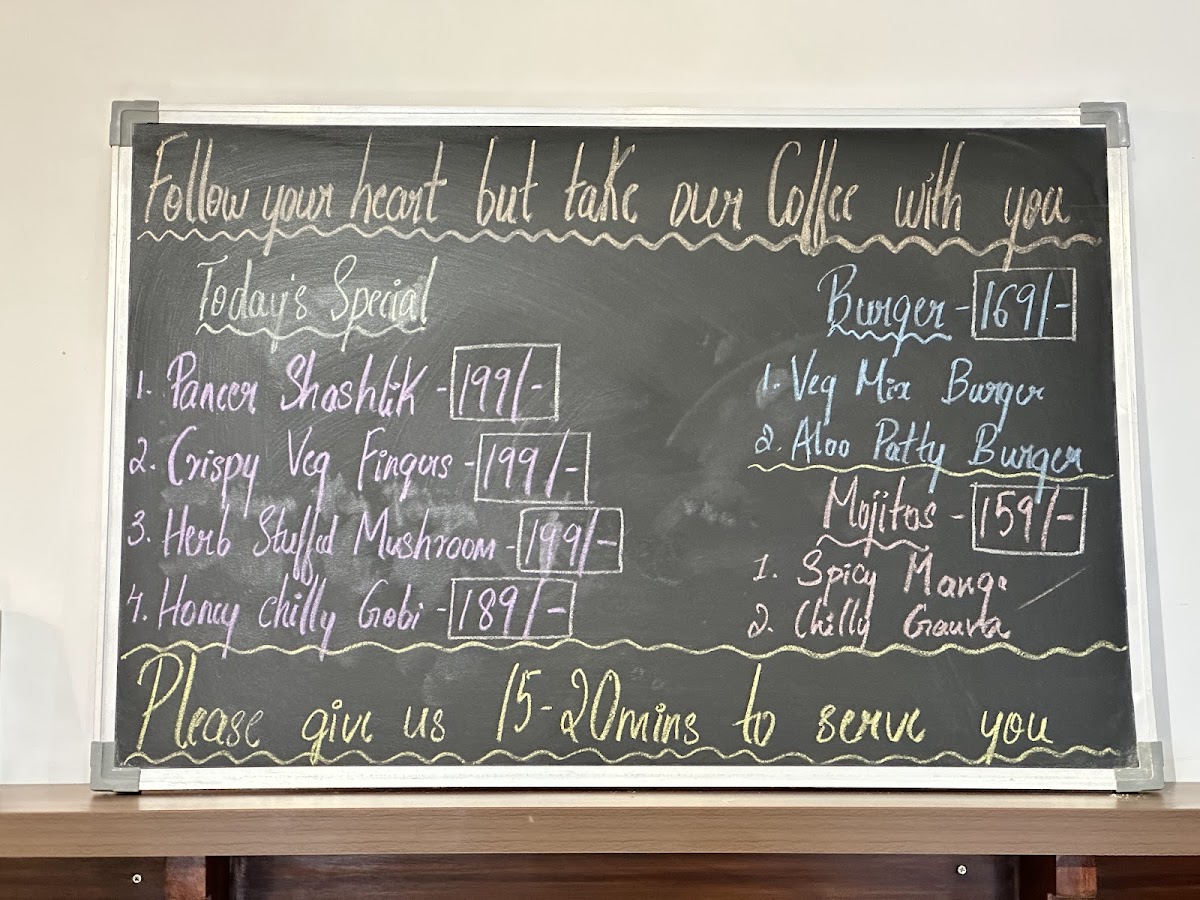 Follow your heart but take our Coffee with you
Today's Special
1. Paneer Shashlik - 199/-
2. Crispy Veg Fingers - 199/-
3. Herb Stuffed Mushroom - 199/-
4. Honey chilly Gobi - 189/-
Burger - 169/-
1. Veg Mix Burger
2. Aloo Patty Burger
Mojitos - 159/-
1. Spicy Mango
2. Chilly Gauva
Please give us 15-20mins to serve you